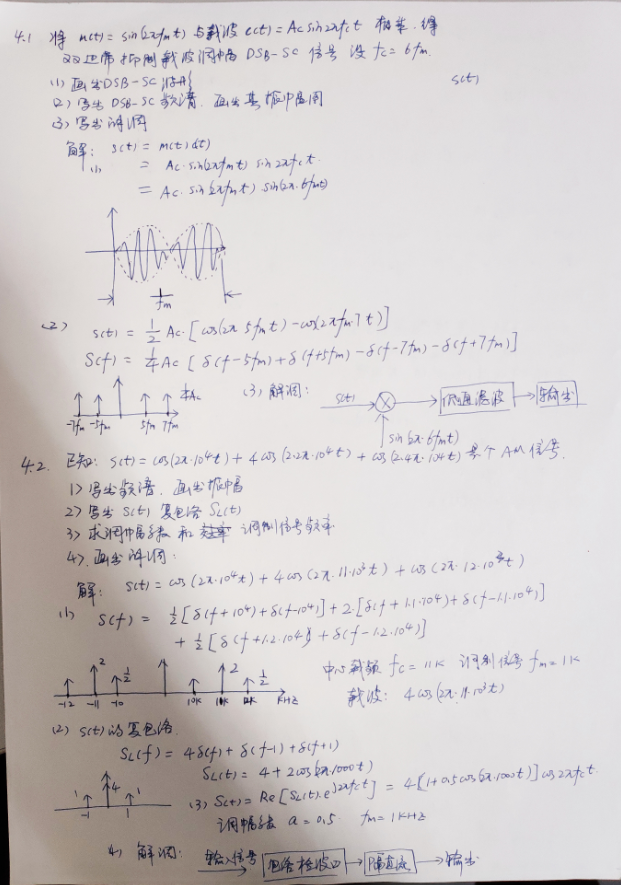 4.1 将 m(t) = sin(2πfmt) 与载波 c(t) = Ac sin2πfct 相乘, 得
双边带抑制载波调幅 DSB-SC 信号 设 fc = 6fm.
s(t)
(1) 画出DSB-SC波形
(2) 写出 DSB-SC 频谱. 画出其振幅图
(3) 写出解调
解: s(t) = m(t)c(t)
(1) = Ac·sin(2πfmt) sin 2πfct.
= Ac·sin(2πfmt) sin(2π·6fmt)
1/fm
(2) s(t) = 1/2 Ac·[cos(2π 5fmt) - cos(2πfm7t)]
S(f) = 1/4 Ac [δ(f-5fm) + δ(f+5fm) - δ(f-7fm) - δ(f+7fm)]
1/4 Ac
-7fm -5fm 5fm 7fm
(3) 解调: s(t) × 低通滤波 输出
sin(2π·6fmt)
4.2. 已知: s(t) = cos(2π·10⁴t) + 4cos(2.2π·10⁴t) + cos(2.4π·10⁴t) 是个AM信号.
1) 写出频谱. 画出振幅
2) 写出 s(t) 复包络 SL(t)
3) 求调幅系数 和 调制信号频率
4) 画出解调:
解: s(t) = cos(2π·10⁴t) + 4cos(2π·11·10³t) + cos(2π·12·10³t)
(1) S(f) = 1/2[δ(f+10⁴) + δ(f-10⁴)] + 2[δ(f+1.1·10⁴) + δ(f-1.1·10⁴)]
+ 1/2[δ(f+1.2·10⁴) + δ(f-1.2·10⁴)]
2 1/2 2 1/2
-12 -11 -10 10K 11K 12K KHZ
中心载频 fc = 11K 调制信号 fm = 1K
载波: 4cos(2π·11·10³t)
(2) s(t)的复包络.
SL(f) = 4δ(f) + δ(f-1) + δ(f+1)
SL(t) = 4 + 2cos(2π·1000t)
1 4 1
-1 1
(3) S(t) = Re[SL(t)·e^j2πfct] = 4[1+0.5cos(2π·1000t)]cos2πfct.
调幅系数 a = 0.5 fm = 1KHZ
4) 解调: 输入信号 包络检波 隔直流 输出